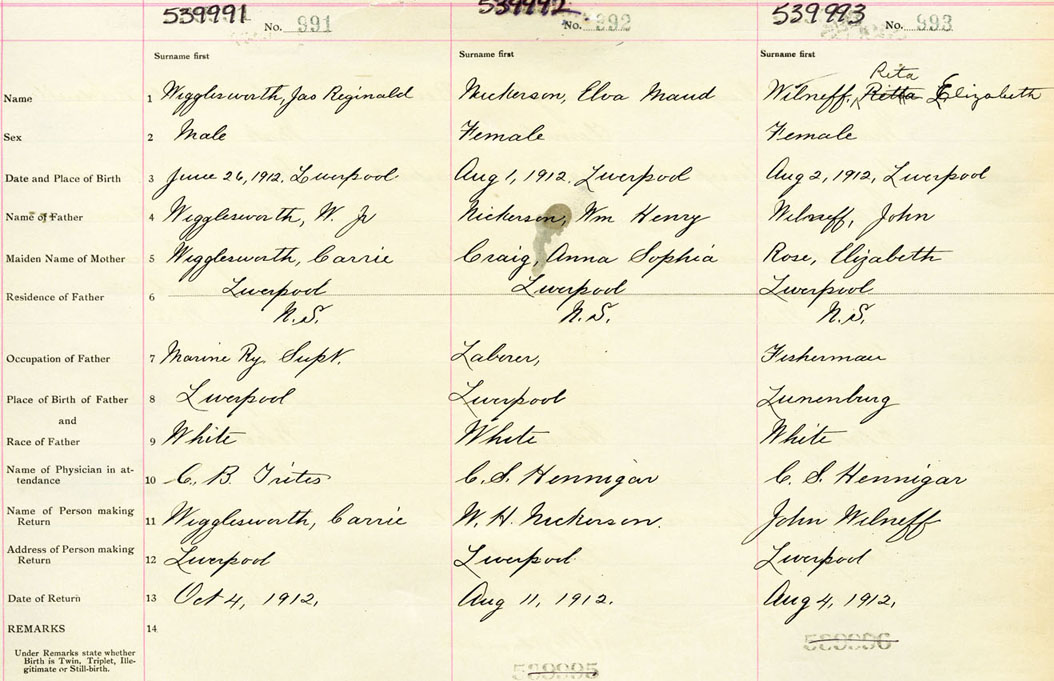 539991 539992 539993
No. 991 No. 992 No. 993
Surname first Surname first Surname first
Rita
Name 1 Wigglesworth, Jas Reginald Nickerson, Elva Maud Wilneff, Retta Elizabeth
Sex 2 Male Female Female
Date and Place of Birth 3 June 26, 1912. Liverpool Aug 1, 1912. Liverpool Aug 2, 1912, Liverpool
Name of Father 4 Wigglesworth, W. Jr Nickerson, Wm Henry Wilneff, John
Maiden Name of Mother 5 Wigglesworth, Carrie Craig, Anna Sophia Rose, Elizabeth
Residence of Father 6 Liverpool Liverpool Liverpool
N.S. N.S. N.S.
Occupation of Father 7 Marine Ry. Supt. Laborer, Fisherman
Place of Birth of Father 8 Liverpool Liverpool Lunenburg
and
Race of Father 9 White White White
Name of Physician in at-
tendance 10 C. B. Trites C. S. Hennigar C. S. Hennigar
Name of Person making
Return 11 Wigglesworth, Carrie W. H. Nickerson. John Wilneff
Address of Person making
Return 12 Liverpool Liverpool Liverpool
Date of Return 13 Oct 4, 1912. Aug 11, 1912. Aug 4, 1912.
REMARKS 14
539996
Under Remarks state whether
Birth is Twin, Triplet, Ille-
gitimate or Still-birth.
539995